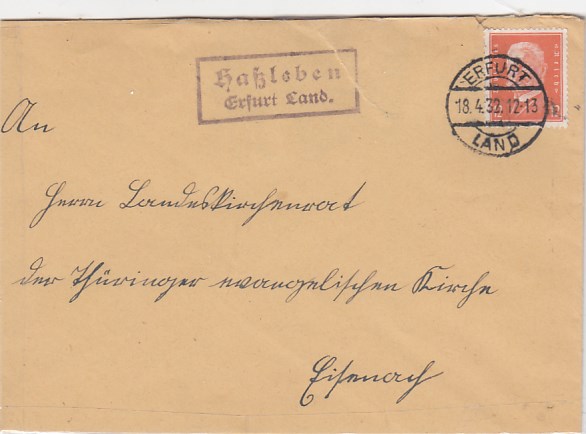 Haßleben
Erfurt Land.
ERFURT
18.4.32.12-13
LAND
An
Herrn Landeskirchenrat
der Thüringer evangelischen Kirche
Eisenach